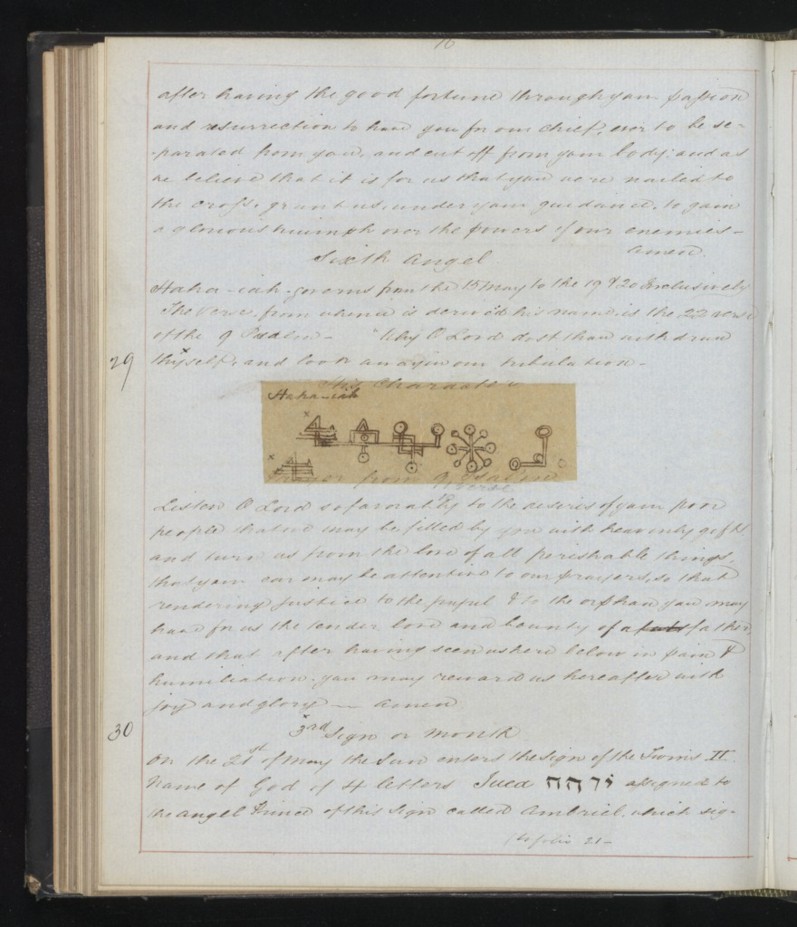 10
after having the good fortune through your passion
and resurrection to have you for our chief, ever to be se-
-parated from you, and cut off from your body: and as
we believe that it is for us that you were nailed to
the cross, grant us, under your guidance, to gain
a glorious triumph over the powers of our enemies -
Amen
Sixth Angel
Haka-iah governs from the 15 May to the 19 & 20 Inclusively
The verse from whence is deriv'd his name is the 22 verse
of the 9 Psalm - "Why O Lord dost thou withdraw
29
thyself, and look away in our tribulation -
This Character
Haka-iah
from 9 Psalm
verse
Listen O Lord so favorably to the desires of your poor
people that we may be filled by you with heavenly gifts
and turn us from the love of all perishable things,
that your ear may be attentive to our prayers, so that
rendering Justice to the pupil & to the orphan you may
have for us the tender love and bounty of a father
and that after having seen us here below in pain &
humiliation, you may reward us hereafter with
joy and glory — Amen
30
3rd Sign or month
On the 21st of May the Sun enters the sign of the Twins II
Name of God of 4 letters Jued יוהה assigned to
the angel Prince of this Sign called Ambriel, which sig-
to folio 21 -